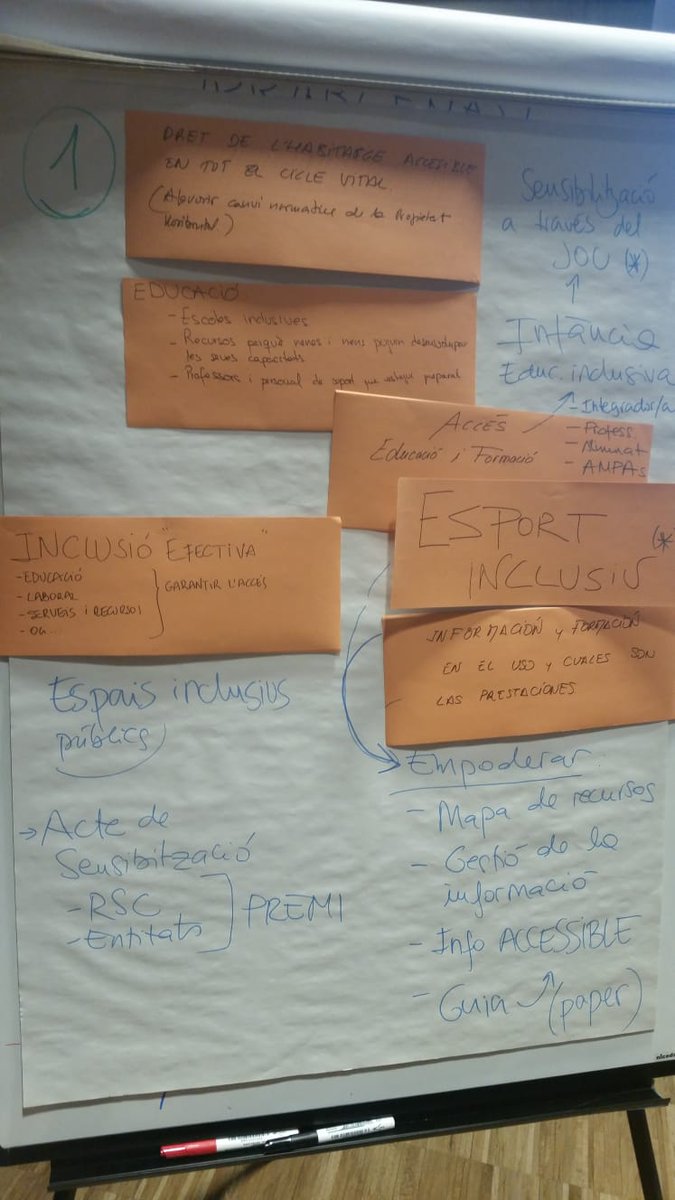 1
DRET DE L'HABITATGE ACCESIBLE
EN TOT EL CICLE VITAL
(Afavorir canvi normatiu de la Propietat
Horitzontal)
Sensibilització
a través del
JOC (*)
↑
Infància
Educ. inclusiva
- Integrador/a
- Profess.
- Alumnat
- AMPAs
EDUCACIÓ
- Escoles inclusives
- Recursos perquè nenes i nens puguin desenvolupar
les seves capacitats
- Professors i personal de suport que estigui preparat
ACCÉS
Educació i Formació
ESPORT (*)
INCLUSIU
INCLUSIÓ "EFECTIVA"
- EDUCACIÓ
- LABORAL
- SERVEIS i RECURSOS
- OCI...
GARANTIR L'ACCÉS
INFORMACIÓN y FORMACIÓN
EN EL USO y CUALES SON
LAS PRESTACIONES
Espais inclusius
públics
→ Acte de
Sensibització
- RSC
- Entitats
PREMI
Empoderar
- Mapa de recursos
- Gestió de la
informació
- Info ACCESSIBLE
- Guia (paper)